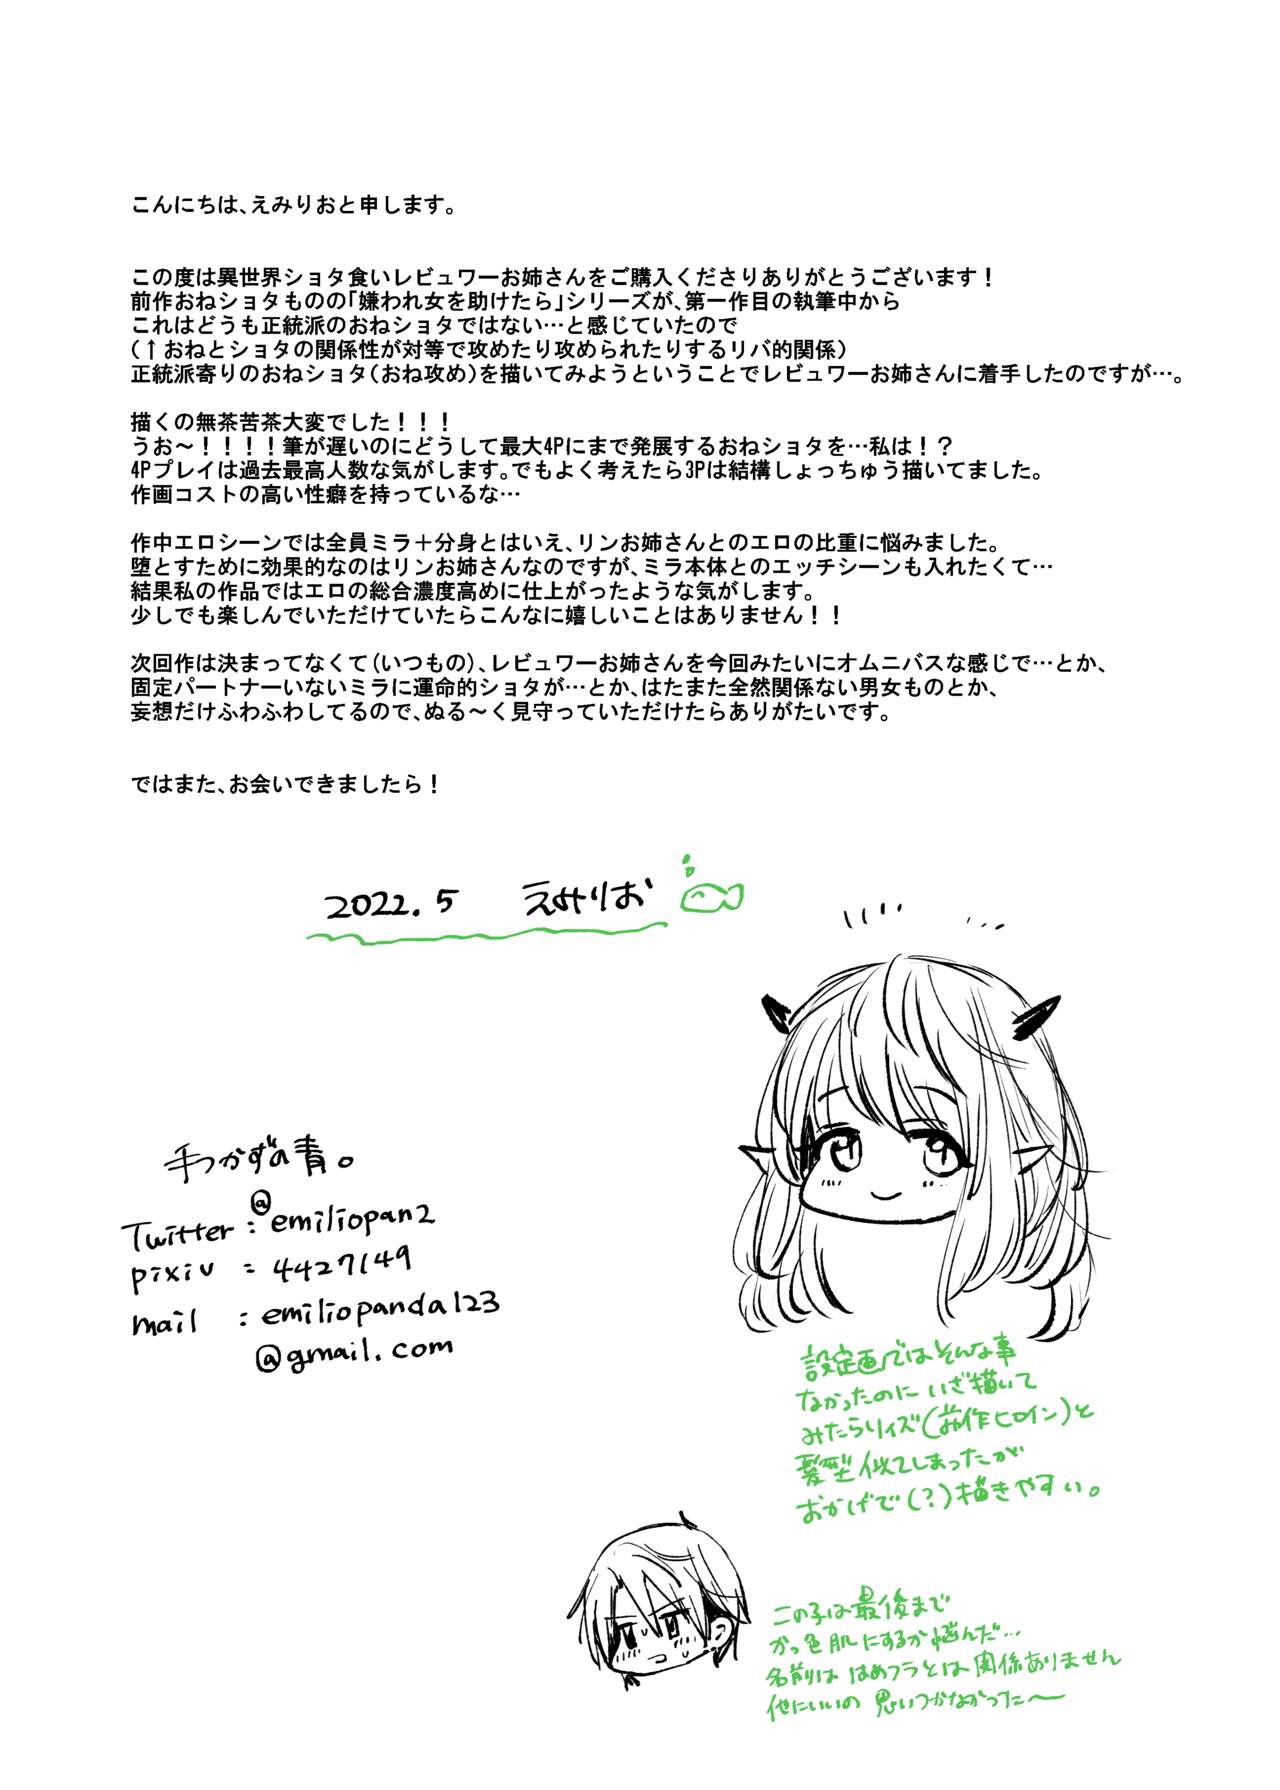 こんにちは、えみりおと申します。
この度は異世界ショタ食いレビュワーお姉さんをご購入くださりありがとうございます！
前作おねショタものの「嫌われ女を助けたら」シリーズが、第一作目の執筆中から
これはどうも正統派のおねショタではない…と感じていたので
（↑おねとショタの関係性が対等で攻めたり攻められたりするリバ的関係）
正統派寄りのおねショタ（おね攻め）を描いてみようということでレビュワーお姉さんに着手したのですが…。
描くの無茶苦茶大変でした！！！
うお～！！！！筆が遅いのにどうして最大4Pにまで発展するおねショタを…私は！？
4Pプレイは過去最高人数な気がします。でもよく考えたら3Pは結構しょっちゅう描いてました。
作画コストの高い性癖を持っているな…
作中エロシーンでは全員ミラ＋分身とはいえ、リンお姉さんとのエロの比重に悩みました。
堕とすために効果的なのはリンお姉さんなのですが、ミラ本体とのエッチシーンも入れたくて…
結果私の作品ではエロの総合濃度高めに仕上がったような気がします。
少しでも楽しんでいただけていたらこんなに嬉しいことはありません！！
次回作は決まってなくて（いつもの）、レビュワーお姉さんを今回みたいにオムニバスな感じで…とか、
固定パートナーいないミラに運命的ショタが…とか、はたまた全然関係ない男女ものとか、
妄想だけふわふわしてるので、ぬる～く見守っていただけたらありがたいです。
ではまた、お会いできましたら！
2022.5 えみりお
手つかずの青。
Twitter : @emiliopan2
pixiv : 4427149
mail : emiliopanda123
@gmail.com
設定画ではそんな事
なかったのにいざ描いて
みたらリズ(前作ヒロイン)と
髪型似てしまったが
おかげで(？)描きやすい。
この子は最後まで
かっ色肌にするか悩んだ…
名前ははめフラとは関係ありません
他にいいの思いつかなかった～